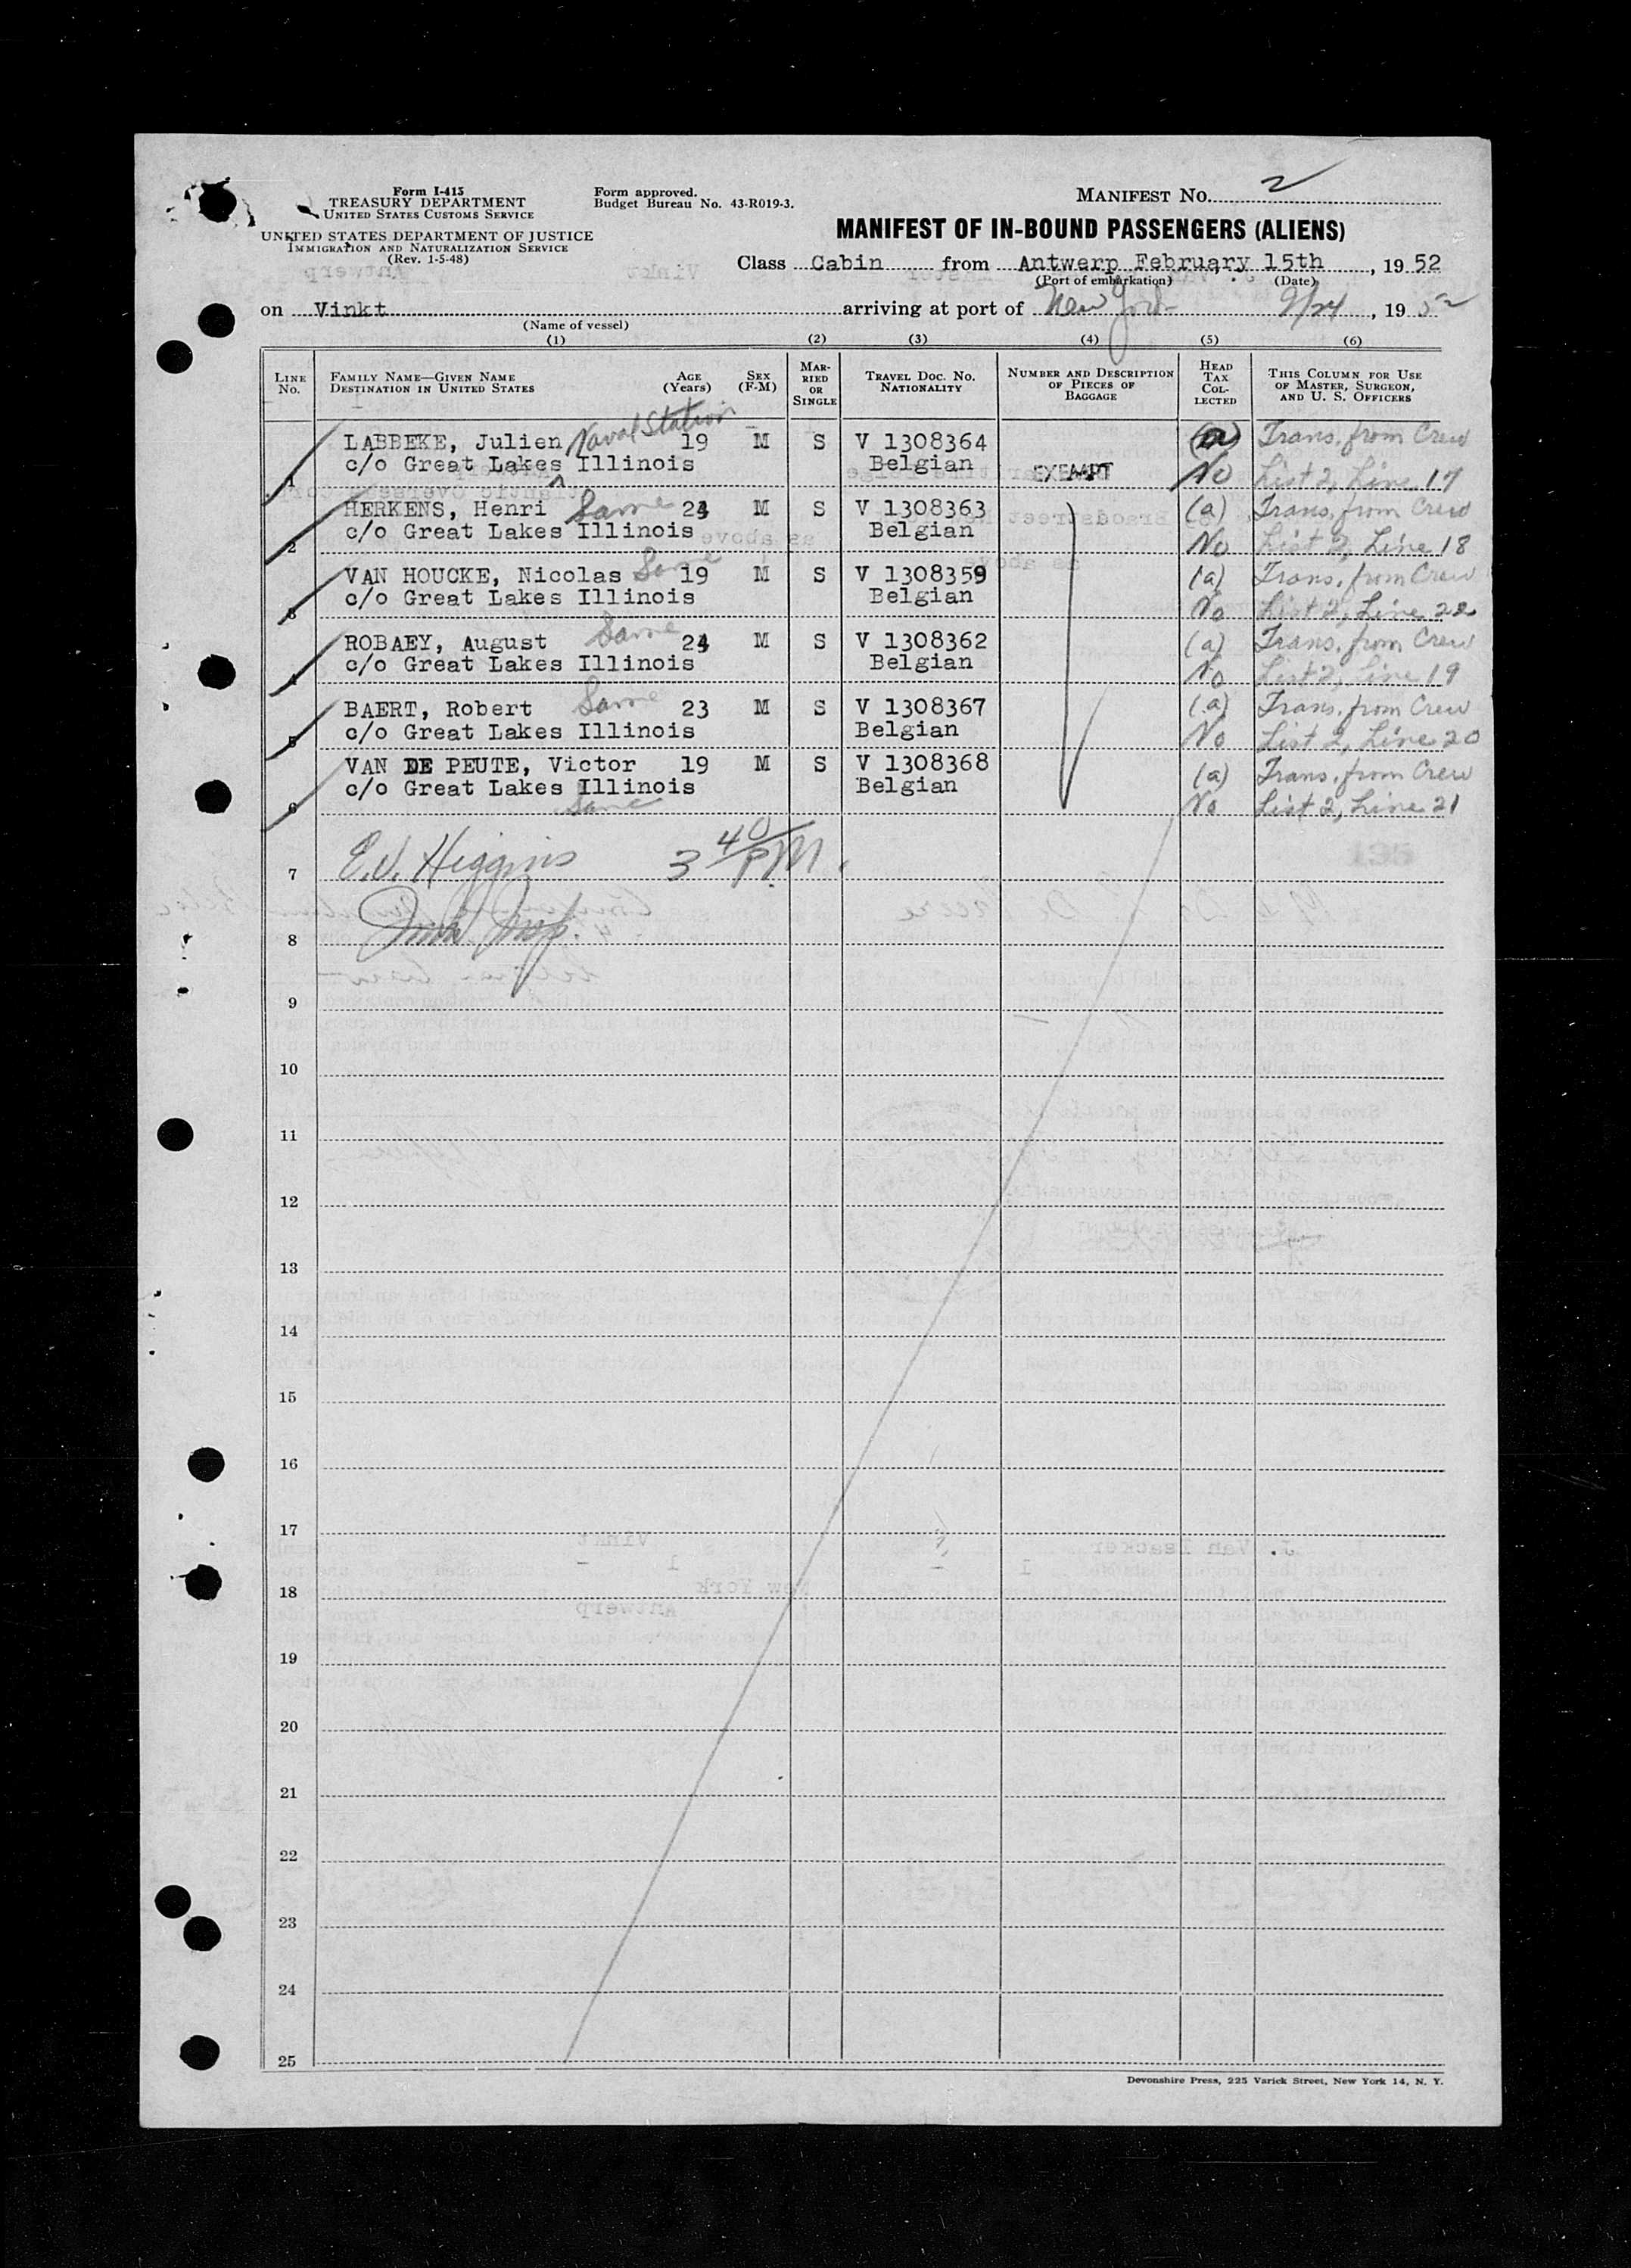 Form I-415
TREASURY DEPARTMENT
UNITED STATES CUSTOMS SERVICE
UNITED STATES DEPARTMENT OF JUSTICE
IMMIGRATION AND NATURALIZATION SERVICE
(Rev. 1-5-48)
Form approved.
Budget Bureau No. 43-R019-3.
MANIFEST NO. 2
MANIFEST OF IN-BOUND PASSENGERS (ALIENS)
Class Cabin from Antwerp February 15th, 19 52
(Port of embarkation) (Date)
on Vinkt arriving at port of New York 2/24, 19 52
(Name of vessel)
(1) (2) (3) (4) (5) (6)
LINE No. FAMILY NAME—GIVEN NAME DESTINATION IN UNITED STATES AGE (Years) SEX (F-M) MARRIED OR SINGLE TRAVEL DOC. NO. NATIONALITY NUMBER AND DESCRIPTION OF PIECES OF BAGGAGE HEAD TAX COLLECTED THIS COLUMN FOR USE OF MASTER, SURGEON, AND U. S. OFFICERS
LABBEKE, Julien Naval Station 19 M S V 1308364 (a) Trans. from Crew
1 c/o Great Lakes ^ Illinois Belgian EXEMPT No List 2, Line 17
HERKENS, Henri Same 24 M S V 1308363 (a) Trans. from Crew
2 c/o Great Lakes Illinois Belgian No List 2, Line 18
VAN HOUCKE, Nicolas Same 19 M S V 1308359 (a) Trans. from Crew
3 c/o Great Lakes Illinois Belgian No List 2, Line 22
ROBAEY, August Same 24 M S V 1308362 (a) Trans. from Crew
4 c/o Great Lakes Illinois Belgian No List 2, Line 19
BAERT, Robert Same 23 M S V 1308367 (a) Trans. from Crew
5 c/o Great Lakes Illinois Belgian No List 2, Line 20
VAN DE PEUTE, Victor 19 M S V 1308368 (a) Trans. from Crew
6 c/o Great Lakes Illinois Same Belgian No List 2, Line 21
7 E.V. Higgins 3 40/PM.
8 Imm. Insp.
9
10
11
12
13
14
15
16
17
18
19
20
21
22
23
24
25
Devonshire Press, 225 Varick Street, New York 14, N. Y.